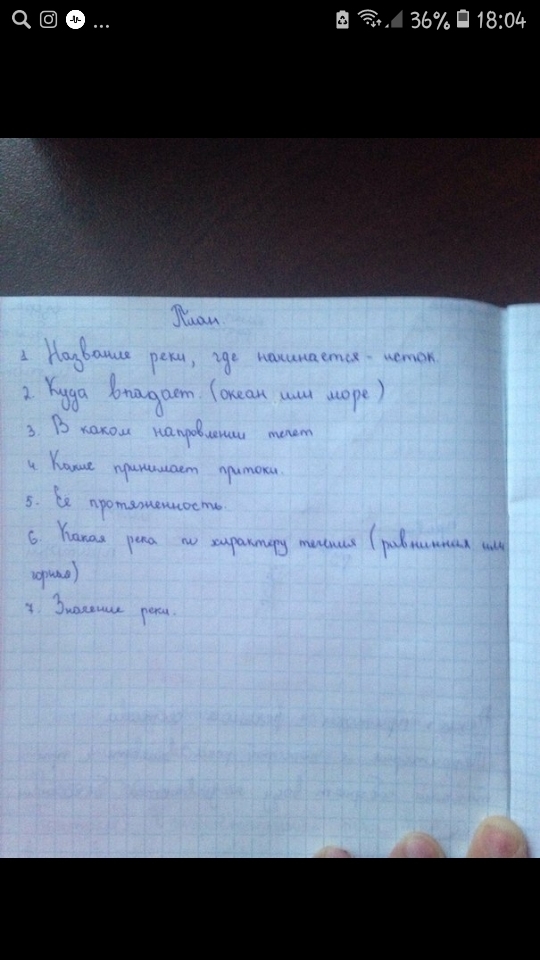 ... 36% 18:04
План.
1 Название реки, где начинается - исток.
2. Куда впадает. (океан или море)
3. В каком напровлении течет
4. Какие принимает притоки.
5. Её протяженность.
6. Какая река по характеру течения (равнинная или
горная)
7. Значение реки.